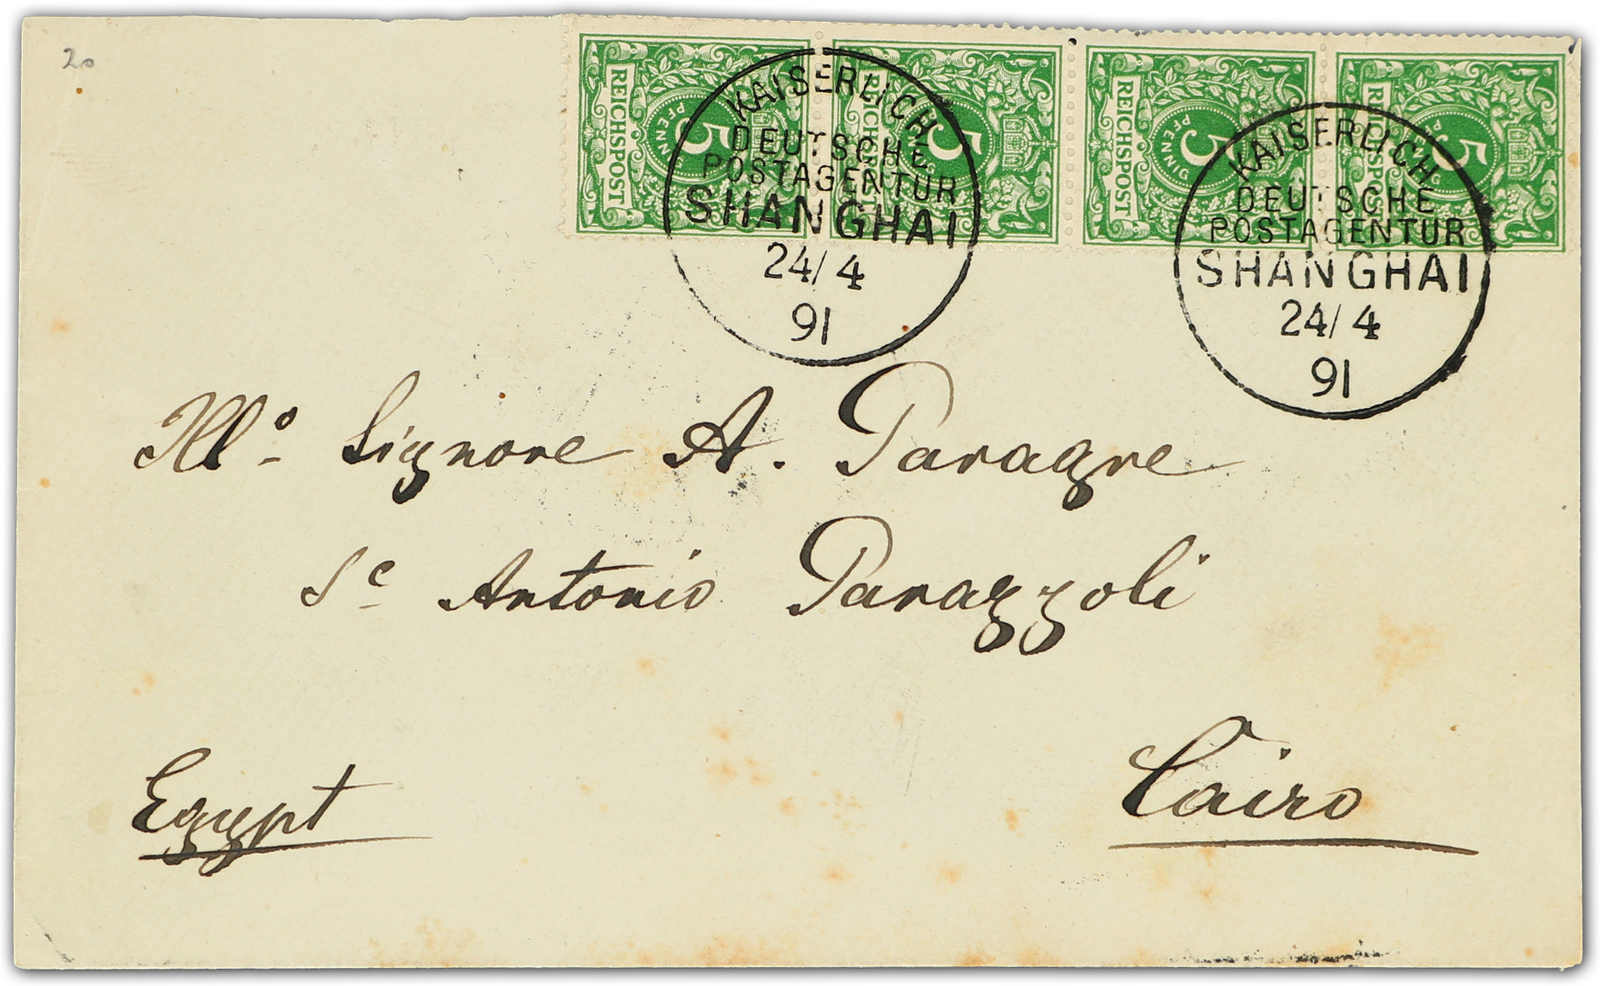 20
REICHSPOST 5 PFENNIG
REICHSPOST 5 PFENNIG
REICHSPOST 5 PFENNIG
REICHSPOST 5 PFENNIG
KAISERLICH
DEUTSCHE
POSTAGENTUR
SHANGHAI
24/4
91
KAISERLICH
DEUTSCHE
POSTAGENTUR
SHANGHAI
24/4
91
Ill.o Signore A. Paragre
Sc Antonio Parazzoli
Egypt
Cairo